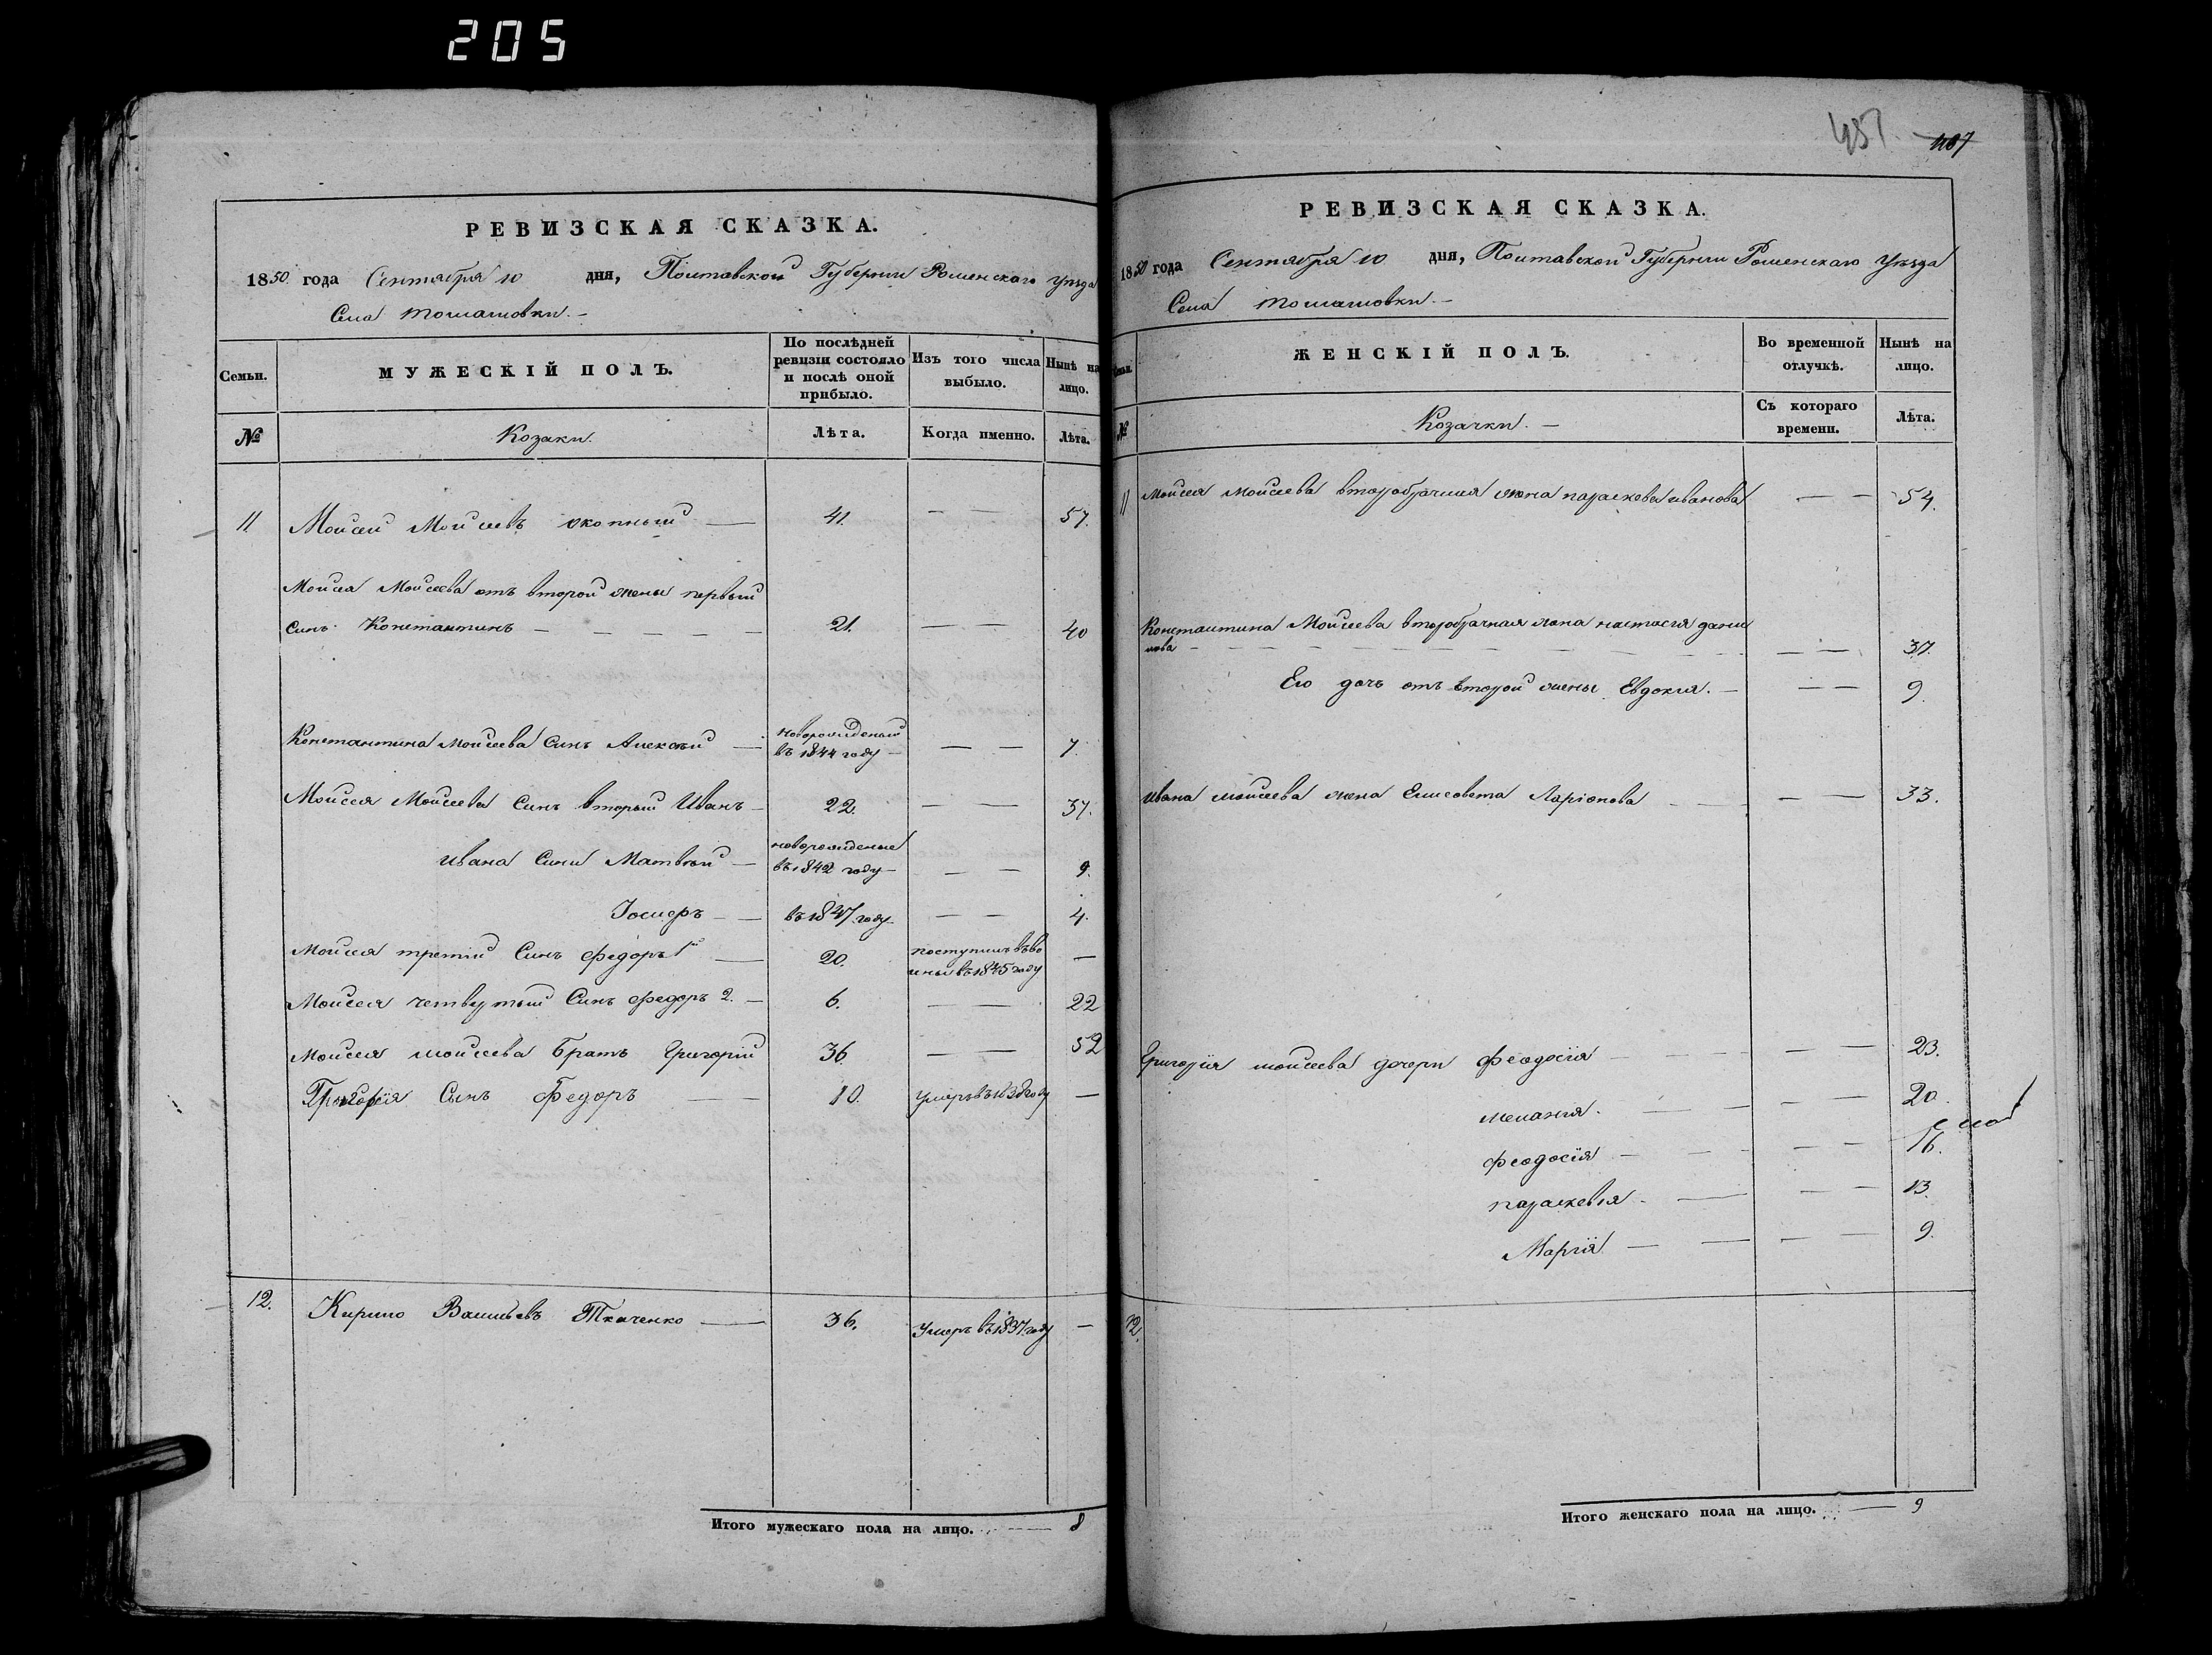 205
РЕВИЗСКАЯ СКАЗКА.
1850 года Сентября 10 дня, Полтавской Губернии Роменскаго уезда
Села Томашовки. –
Семьи.
МУЖЕСКІЙ ПОЛЪ.
По послѣдней ревизіи состояло и послѣ оной прибыло.
Изъ того числа выбыло.
Нынѣ на лицо.
№
Козаки.
Лѣта.
Когда именно.
Лѣта.
11 Мойсей Мойсеевъ 41. — — 57.
Мойсея Мойсеева отъ второй жены первый
синъ Константинъ — 21. — — 40
Константина Мойсеева Синъ Алексѣй — новорожденый въ 1844 году — — — 7.
Мойсея Мойсеева Синъ вторый Иванъ — 22. — — 37.
Ивана Сини Матвѣй — новорожденые въ 1842 году — — — 9.
въ 1847 году — — — 4.
Мойсея третій Синъ Федоръ 1й — 20. поступилъ въ 1845 году —
Мойсея четвертый Синъ Федоръ 2. — 6. — — 22
Мойсея мойсеева Братъ Григорій 36. — — 52
Григорія Сынъ Федоръ — 10. умеръ въ 1838 году —
12. Кирило Васильевъ Ткаченко — 36. Умеръ въ 1837 году —
Итого мужескаго пола на лицо. — 8
457. 407
РЕВИЗСКАЯ СКАЗКА.
1850 года Сентября 10 дня, Полтавской Губернии Роменскаго уѣзда
Села Томашовки. –
Семьи.
ЖЕНСКІЙ ПОЛЪ.
Во временной отлучкѣ.
Нынѣ на лицо.
№
Козачки. —
Съ котораго времени.
Лѣта.
11 Мойсея Мойсеева второбрачная жона параскева иванова — — 54.
Константина Мойсеева второбрачная жона настасія дани
лова — — — 37.
Его дочь отъ второй жены Евдокія. — — — 9.
Ивана мойсеева жена Елисовета Ларіонова — — 33.
Григорія мойсеева дочери Феодосія — — — 23.
меланія. — — — 20.
феодосія — — — 16.
параскевія. — — — 13.
Марія — — — 9.
12.
Итого женскаго пола на лицо. — 9